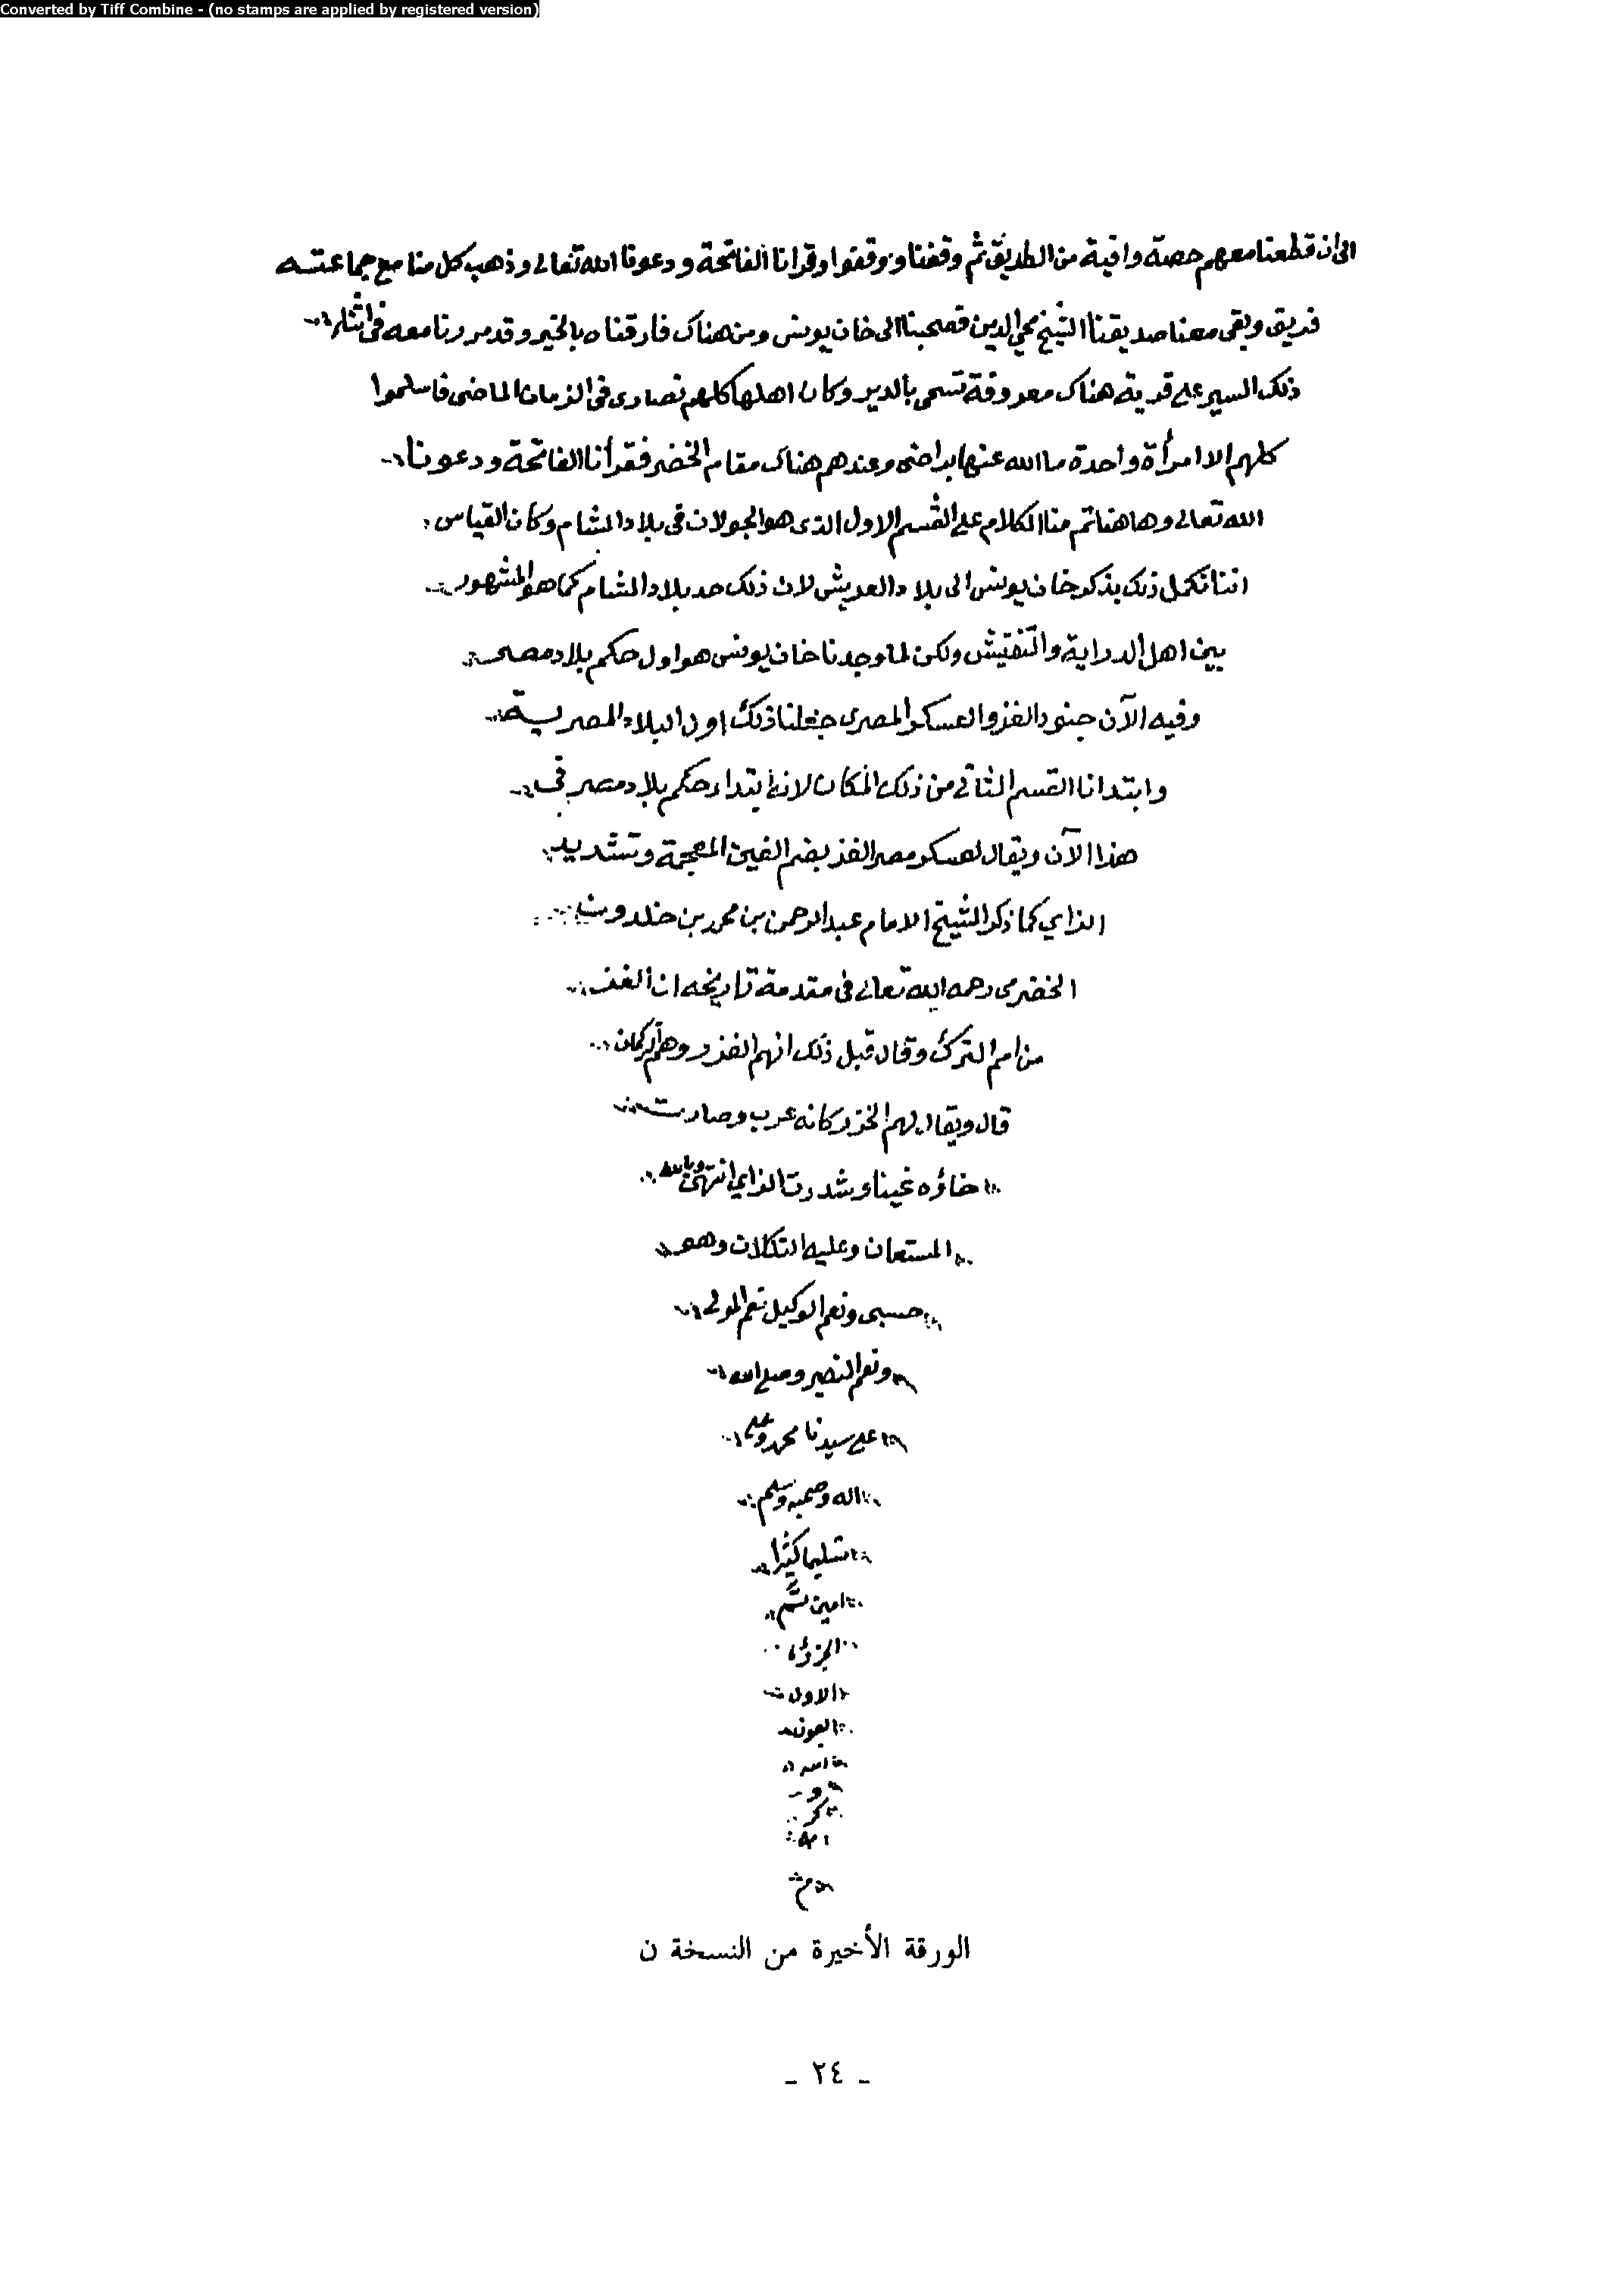 Converted by Tiff Combine - (no stamps are applied by registered version)
الى ان قطعنا معهم حصة وافية من الطريق ثم وقفنا ووقفوا وقرانا الفاتحة ودعونا الله تعالى وذهب كل منا مع جماعته
فريق وبقى معنا صديقنا الشيخ محي الدين فصحبنا الى خان يونس ومن هناك فارقناه بالخير وقد مررنا معه في اثناء
ذلك السير على قرية هناك معروفة تسمى بالدير وكان اهلها كلهم نصارى في الزمان الماضى فاسلموا
كلهم الا امرأة واحدة ما الله عنها براضى وعندهم هناك مقام الخضر فقرأنا الفاتحة ودعونا
الله تعالى وهاهنا تم منا الكلام على القسم الاول الذى هو الجولان في بلاد الشام وكان القياس
اننا نكمل ذلك بذكر خان يونس الى بلاد العريش لان ذلك حد بلاد الشام كما هو المشهور
بين اهل الدراية والتفتيش ولكن لما وجدنا خان يونس هو اول حكم بلاد مصر
وفيه الآن جنود الغز والعسكر المصرى جعلنا ذلك اول البلاد المصرية
وابتدانا القسم الثانى من ذلك المكان لانه ابتداء حكم بلاد مصر في
هذا الآن ويقال لعسكر مصر الغز بضم الغين المعجمة وتشديد
الزاي كما ذكر الشيخ الامام عبد الرحمن بن محمد بن خلدون
الخضرمى رحمه الله تعالى في مقدمة تاريخه ان الغز
من امم الترك وقال قبل ذلك انهم الغزر وهم التركمان
قال ويقال لهم الخزر كانه عرب وصارت
خاؤه غينا وشددت الزاي انتهى وبالله
المستعان وعليه التكلان وهو
حسبى ونعم الوكيل نعم المولى
ونعم النصير وصلى الله
على سيدنا محمد وعلى
اله وصحبه وسلم
تسليما كثيرا
امين تم
الجزؤ
الاول
بعون
الله
و
كر
مه
م
الورقة الأخيرة من النسخة ن
- ٢٤ -